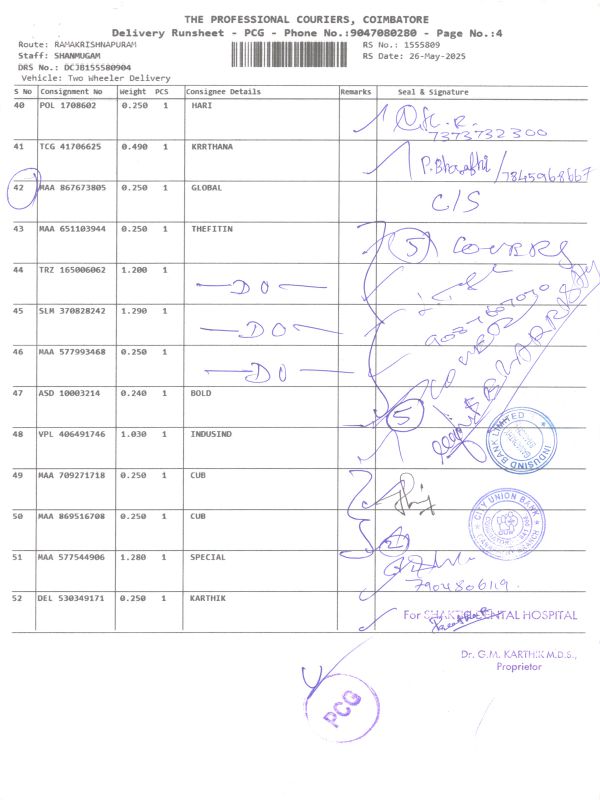 THE PROFESSIONAL COURIERS, COIMBATORE
Delivery Runsheet - PCG - Phone No.:9047080280 - Page No.:4
Route: RAMAKRISHNAPURAM RS No.: 1555809
Staff: SHANMUGAM RS Date: 26-May-2025
DRS No.: DCJB155580904
Vehicle: Two Wheeler Delivery
S No Consignment No Weight PCS Consignee Details Remarks Seal & Signature
40 POL 1708602 0.250 1 HARI
7373732300
41 TCG 41706625 0.490 1 KRRTHANA
42 MAA 867673805 0.250 1 GLOBAL C/S
43 MAA 651103944 0.250 1 THEFITIN 5 COUVERS
44 TRZ 165006062 1.200 1 — DO —
45 SLM 370828242 1.290 1 — DO —
46 MAA 577993468 0.250 1 — DO —
47 ASD 10003214 0.240 1 BOLD 5
48 VPL 406491746 1.030 1 INDUSIND
INDUSIND BANK LIMITED
49 MAA 709271718 0.250 1 CUB
50 MAA 869516708 0.250 1 CUB
CITY UNION BANK
51 MAA 577544906 1.280 1 SPECIAL
7904806119.
52 DEL 530349171 0.250 1 KARTHIK
For SHAKTHI DENTAL HOSPITAL
Dr. G.M. KARTHIK M.D.S.,
Proprietor
PCG